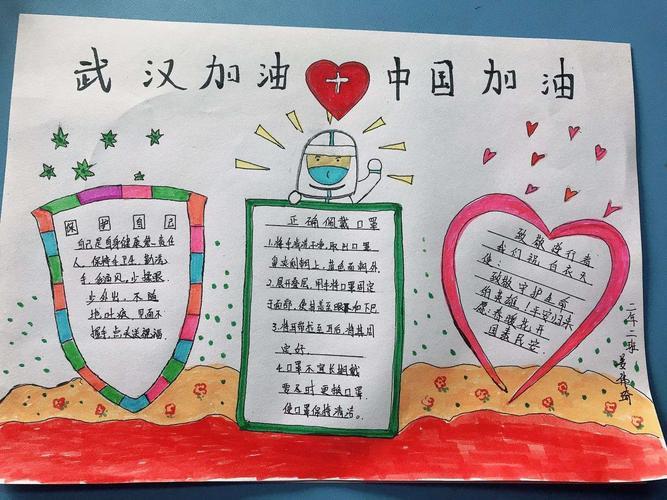 武汉加油 中国加油
保护自己
自己是自身健康第一责任
人，保持手卫生，勤洗
手，多通风，少揉眼。
少外出，不随
地吐痰，见面不
握手，点头送祝福。
正确佩戴口罩
1.将手清洗干净，取出口罩
鱼夹向朝上，蓝色面朝外
2.展开叠层，用手将口罩固定
于面部，使其盖至眼下和下巴
3.将耳带挂至耳后，将其固
定好.
4.口罩不宜长期戴
要及时更换口罩
使口罩保持清洁。
致敬逆行者
我们说白衣天
使：
致敬守护生命
的英雄！平安归来
愿：春暖花开
国泰民安.
二年二班